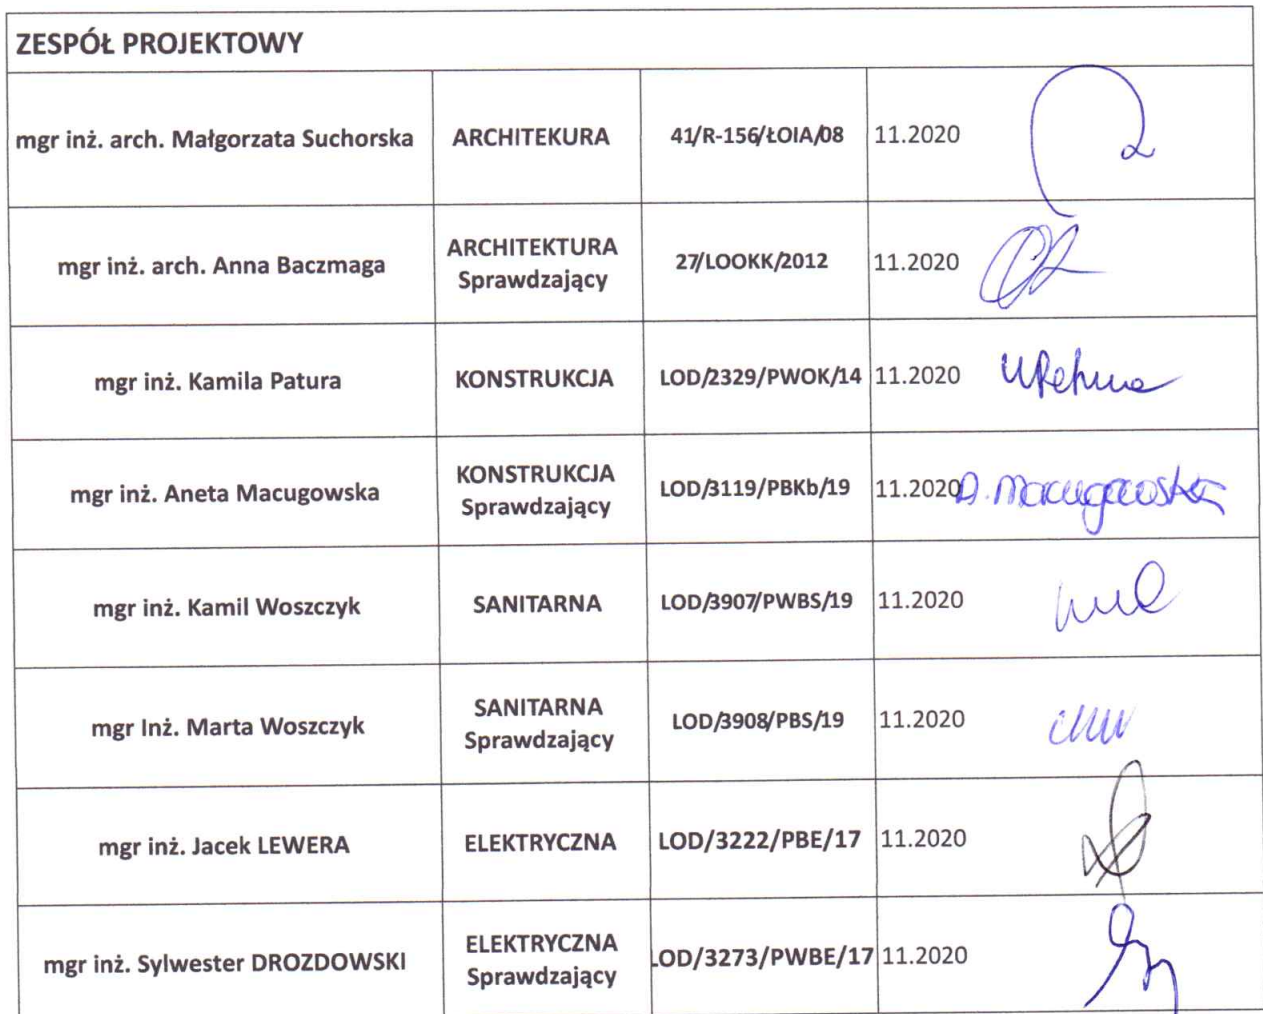 ZESPÓŁ PROJEKTOWY
mgr inż. arch. Małgorzata Suchorska ARCHITEKURA 41/R-156/ŁOIA/08 11.2020
mgr inż. arch. Anna Baczmaga ARCHITEKTURA
Sprawdzający 27/LOOKK/2012 11.2020
mgr inż. Kamila Patura KONSTRUKCJA LOD/2329/PWOK/14 11.2020
mgr inż. Aneta Macugowska KONSTRUKCJA
Sprawdzający LOD/3119/PBKb/19 11.2020 A. Macugowska
mgr inż. Kamil Woszczyk SANITARNA LOD/3907/PWBS/19 11.2020
mgr Inż. Marta Woszczyk SANITARNA
Sprawdzający LOD/3908/PBS/19 11.2020
mgr inż. Jacek LEWERA ELEKTRYCZNA LOD/3222/PBE/17 11.2020
mgr inż. Sylwester DROZDOWSKI ELEKTRYCZNA
Sprawdzający LOD/3273/PWBE/17 11.2020